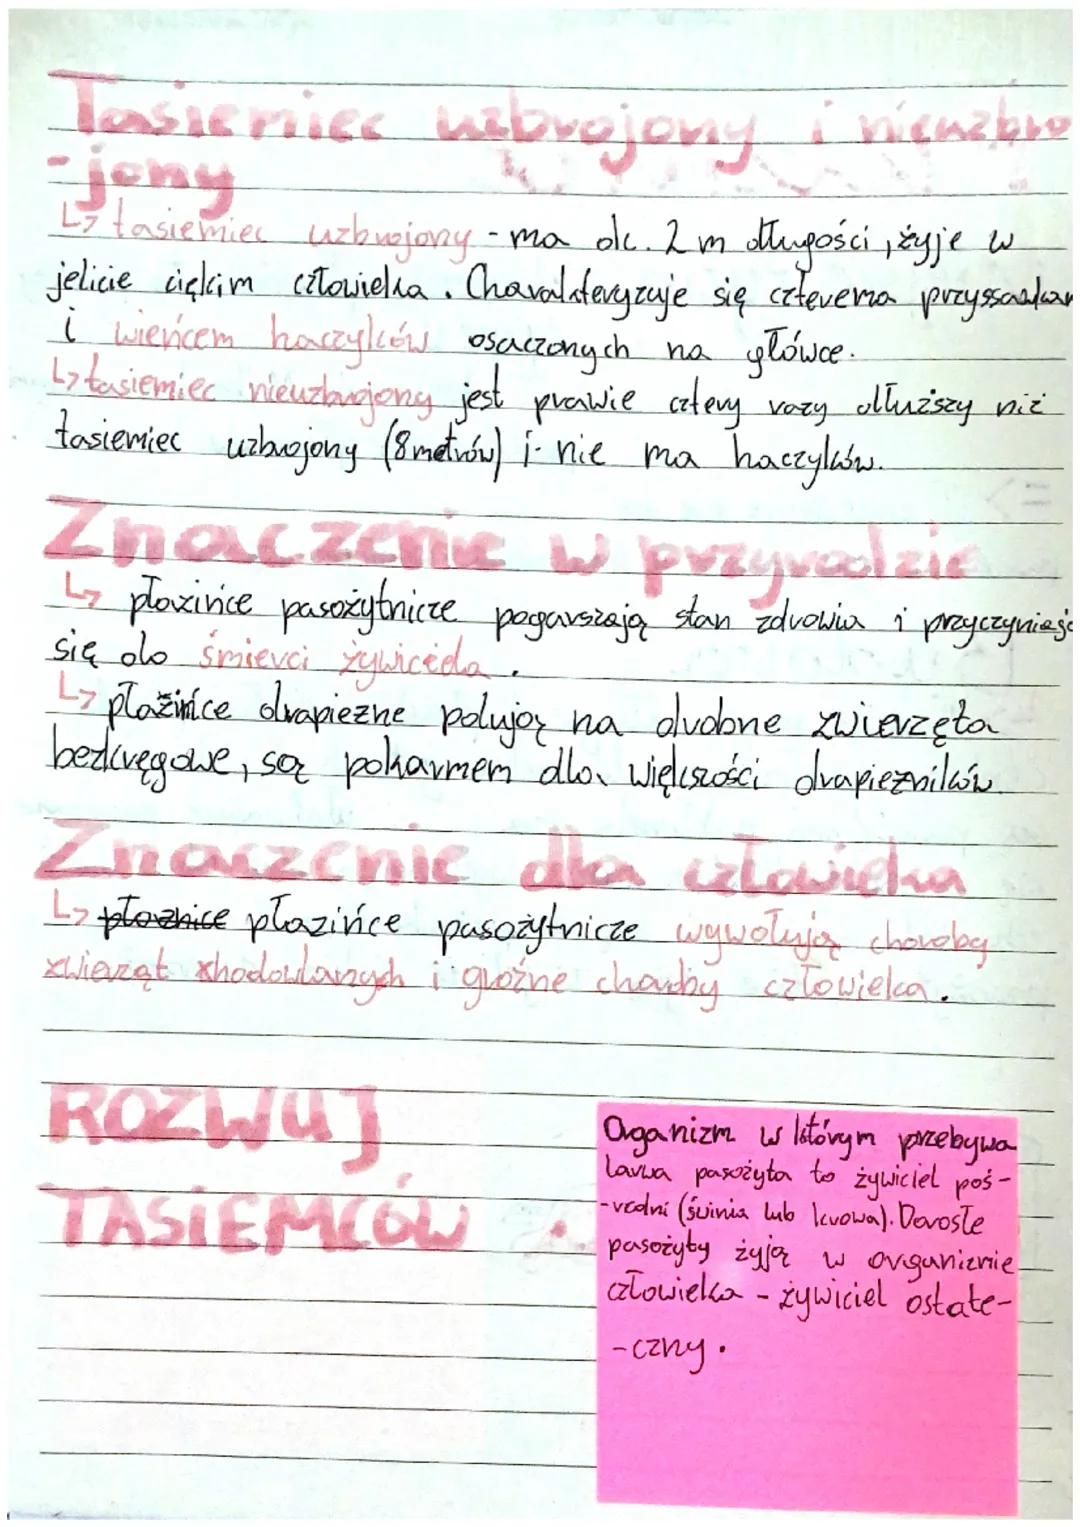 Tasiemiec uzbrojony i nieuzbro
-jony
↳ tasiemiec uzbrojony - ma ok. 2 m długości, żyje w
jelicie ciękim człowieka. Charakteryzuje się czterema przyssawkam
i wieńcem haczyków osaczonych na główce.
↳ tasiemiec nieuzbrojony jest prawie cztery razy dłuższy niż
tasiemiec uzbrojony (8 metrów) i nie ma haczyków.
Znaczenie w przyrodzie
↳ płazińce pasożytnicze pogarszają stan zdrowia i przyczyniają
się do śmierci żywiciela.
↳ płazińce drapieżne polują na drobne zwierzęta
bezkręgowe, są pokarmem dla większości drapieżników
Znaczenie dla człowieka
↳ płaznice płazińce pasożytnicze wywołują choroby
zwierząt hodowlanych i groźne choroby człowieka.
ROZWUJ
TASIEMCÓW
Oganizm w którym przebywa
larwa pasożyta to żywiciel poś-
-redni (świnia lub krowa). Dorosłe
pasożyty żyją w organizmie
człowieka - żywiciel ostate-
-czny.